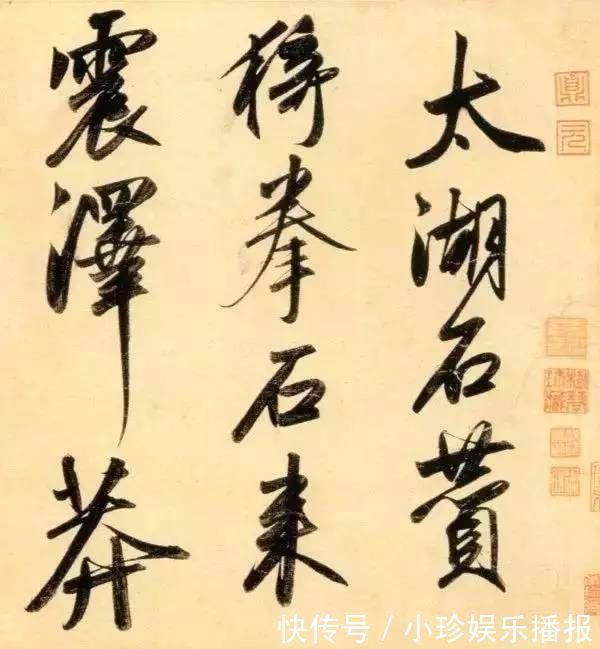 太湖石賛
猗拳石来
震澤莽
快传号 / 小珍娱乐播报